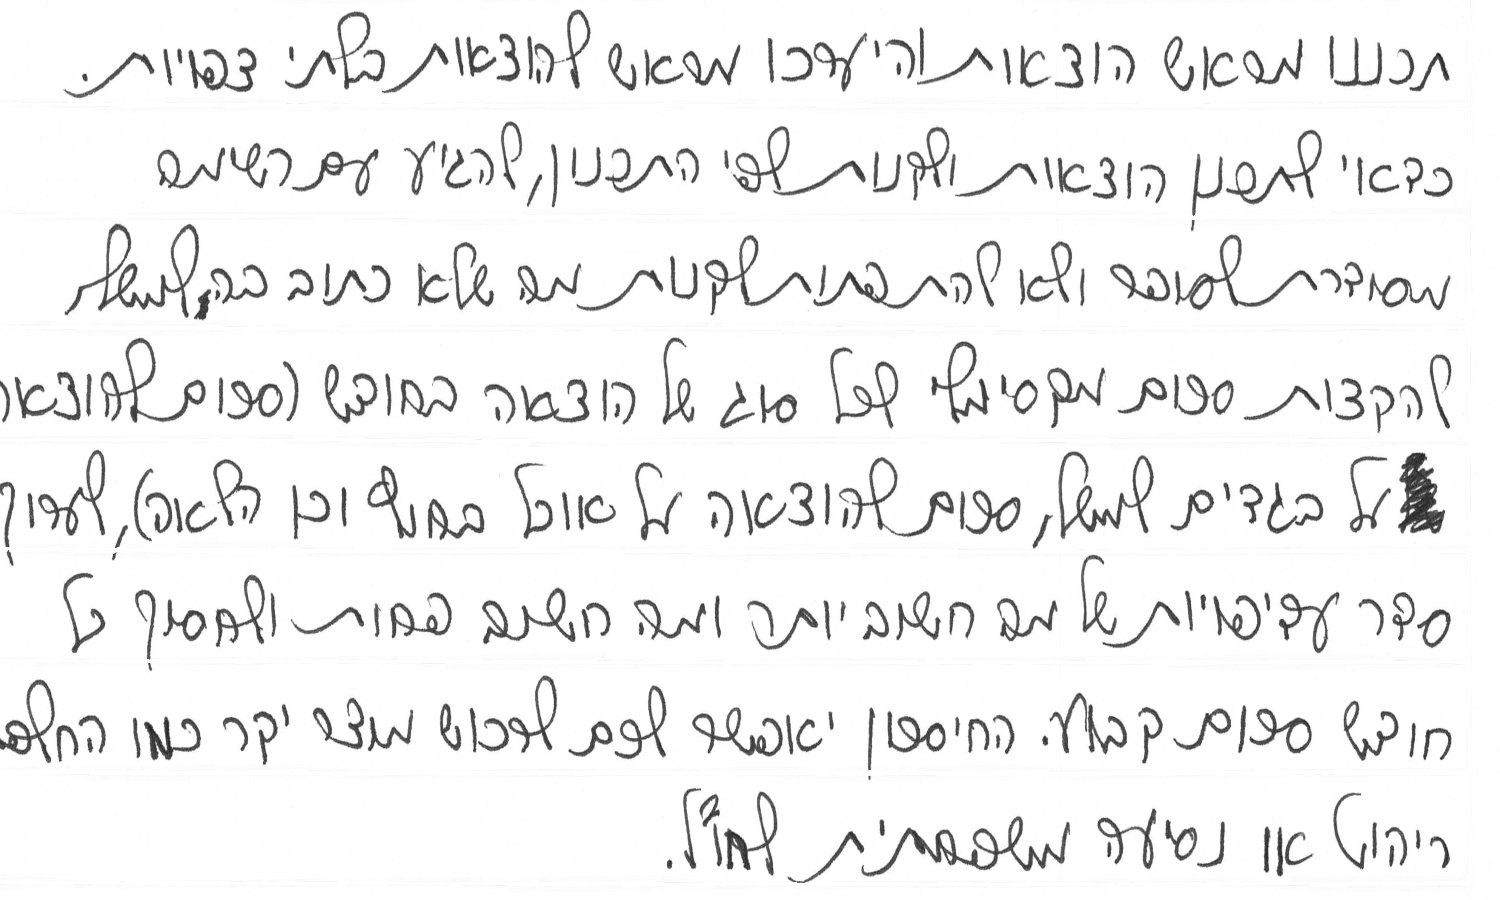 תכננו מראש הוצאות והיערכו מראש להוצאות בלתי צפויות.
כדאי לתכנן הוצאות ולקנות לפי התכנון, להגיע עם רשימה
מסודרת לסופר ולא להתפתות לקנות מה שלא כתוב בה, למשל
להקצות סכום מקסימלי לכל סוג של הוצאה בחודש (סכום להוצאה
על בגדים למשל, סכום להוצאה על אוכל בחוץ וכן הלאה), לערוך
סדר עדיפויות של מה חשוב יותר ומה חשוב פחות ולחסוך כל
חודש סכום קבוע. החיסכון יאפשר לכם לרכוש מוצר יקר כמו החלפת
ריהוט או נסיעה משפחתית לחו"ל.